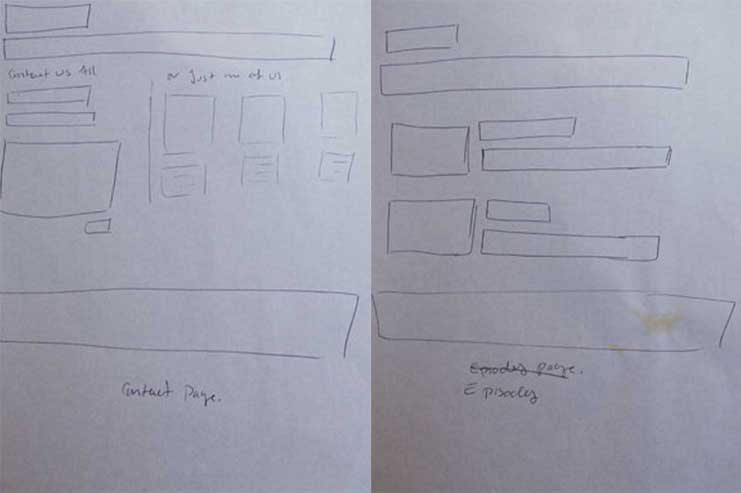 Contact us All
or Just one of us
Contact Page.
Episodes page.
Episodes